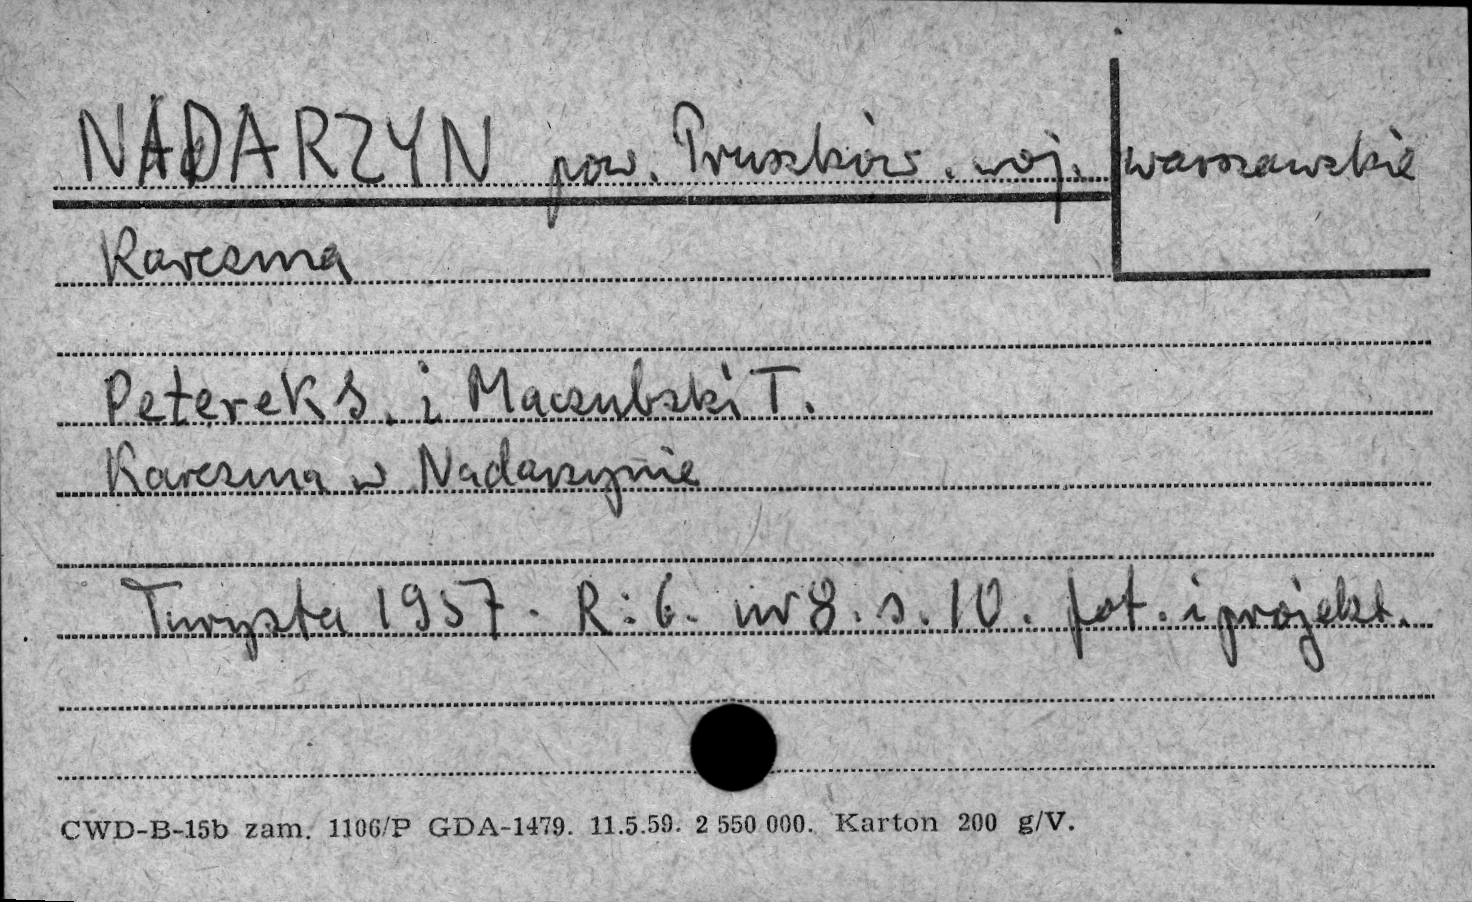 NADARZYN pow. Pruszków. woj. warszawskie
Karczma
Peterek S. i Maczubski T.
Karczma w Nadarzynie
Turysta 1957. R: 6. nr 8. s. 10. fot. i projekt.
CWD-B-15b zam. 1106/P GDA-1479. 11.5.59. 2 550 000. Karton 200 g/V.